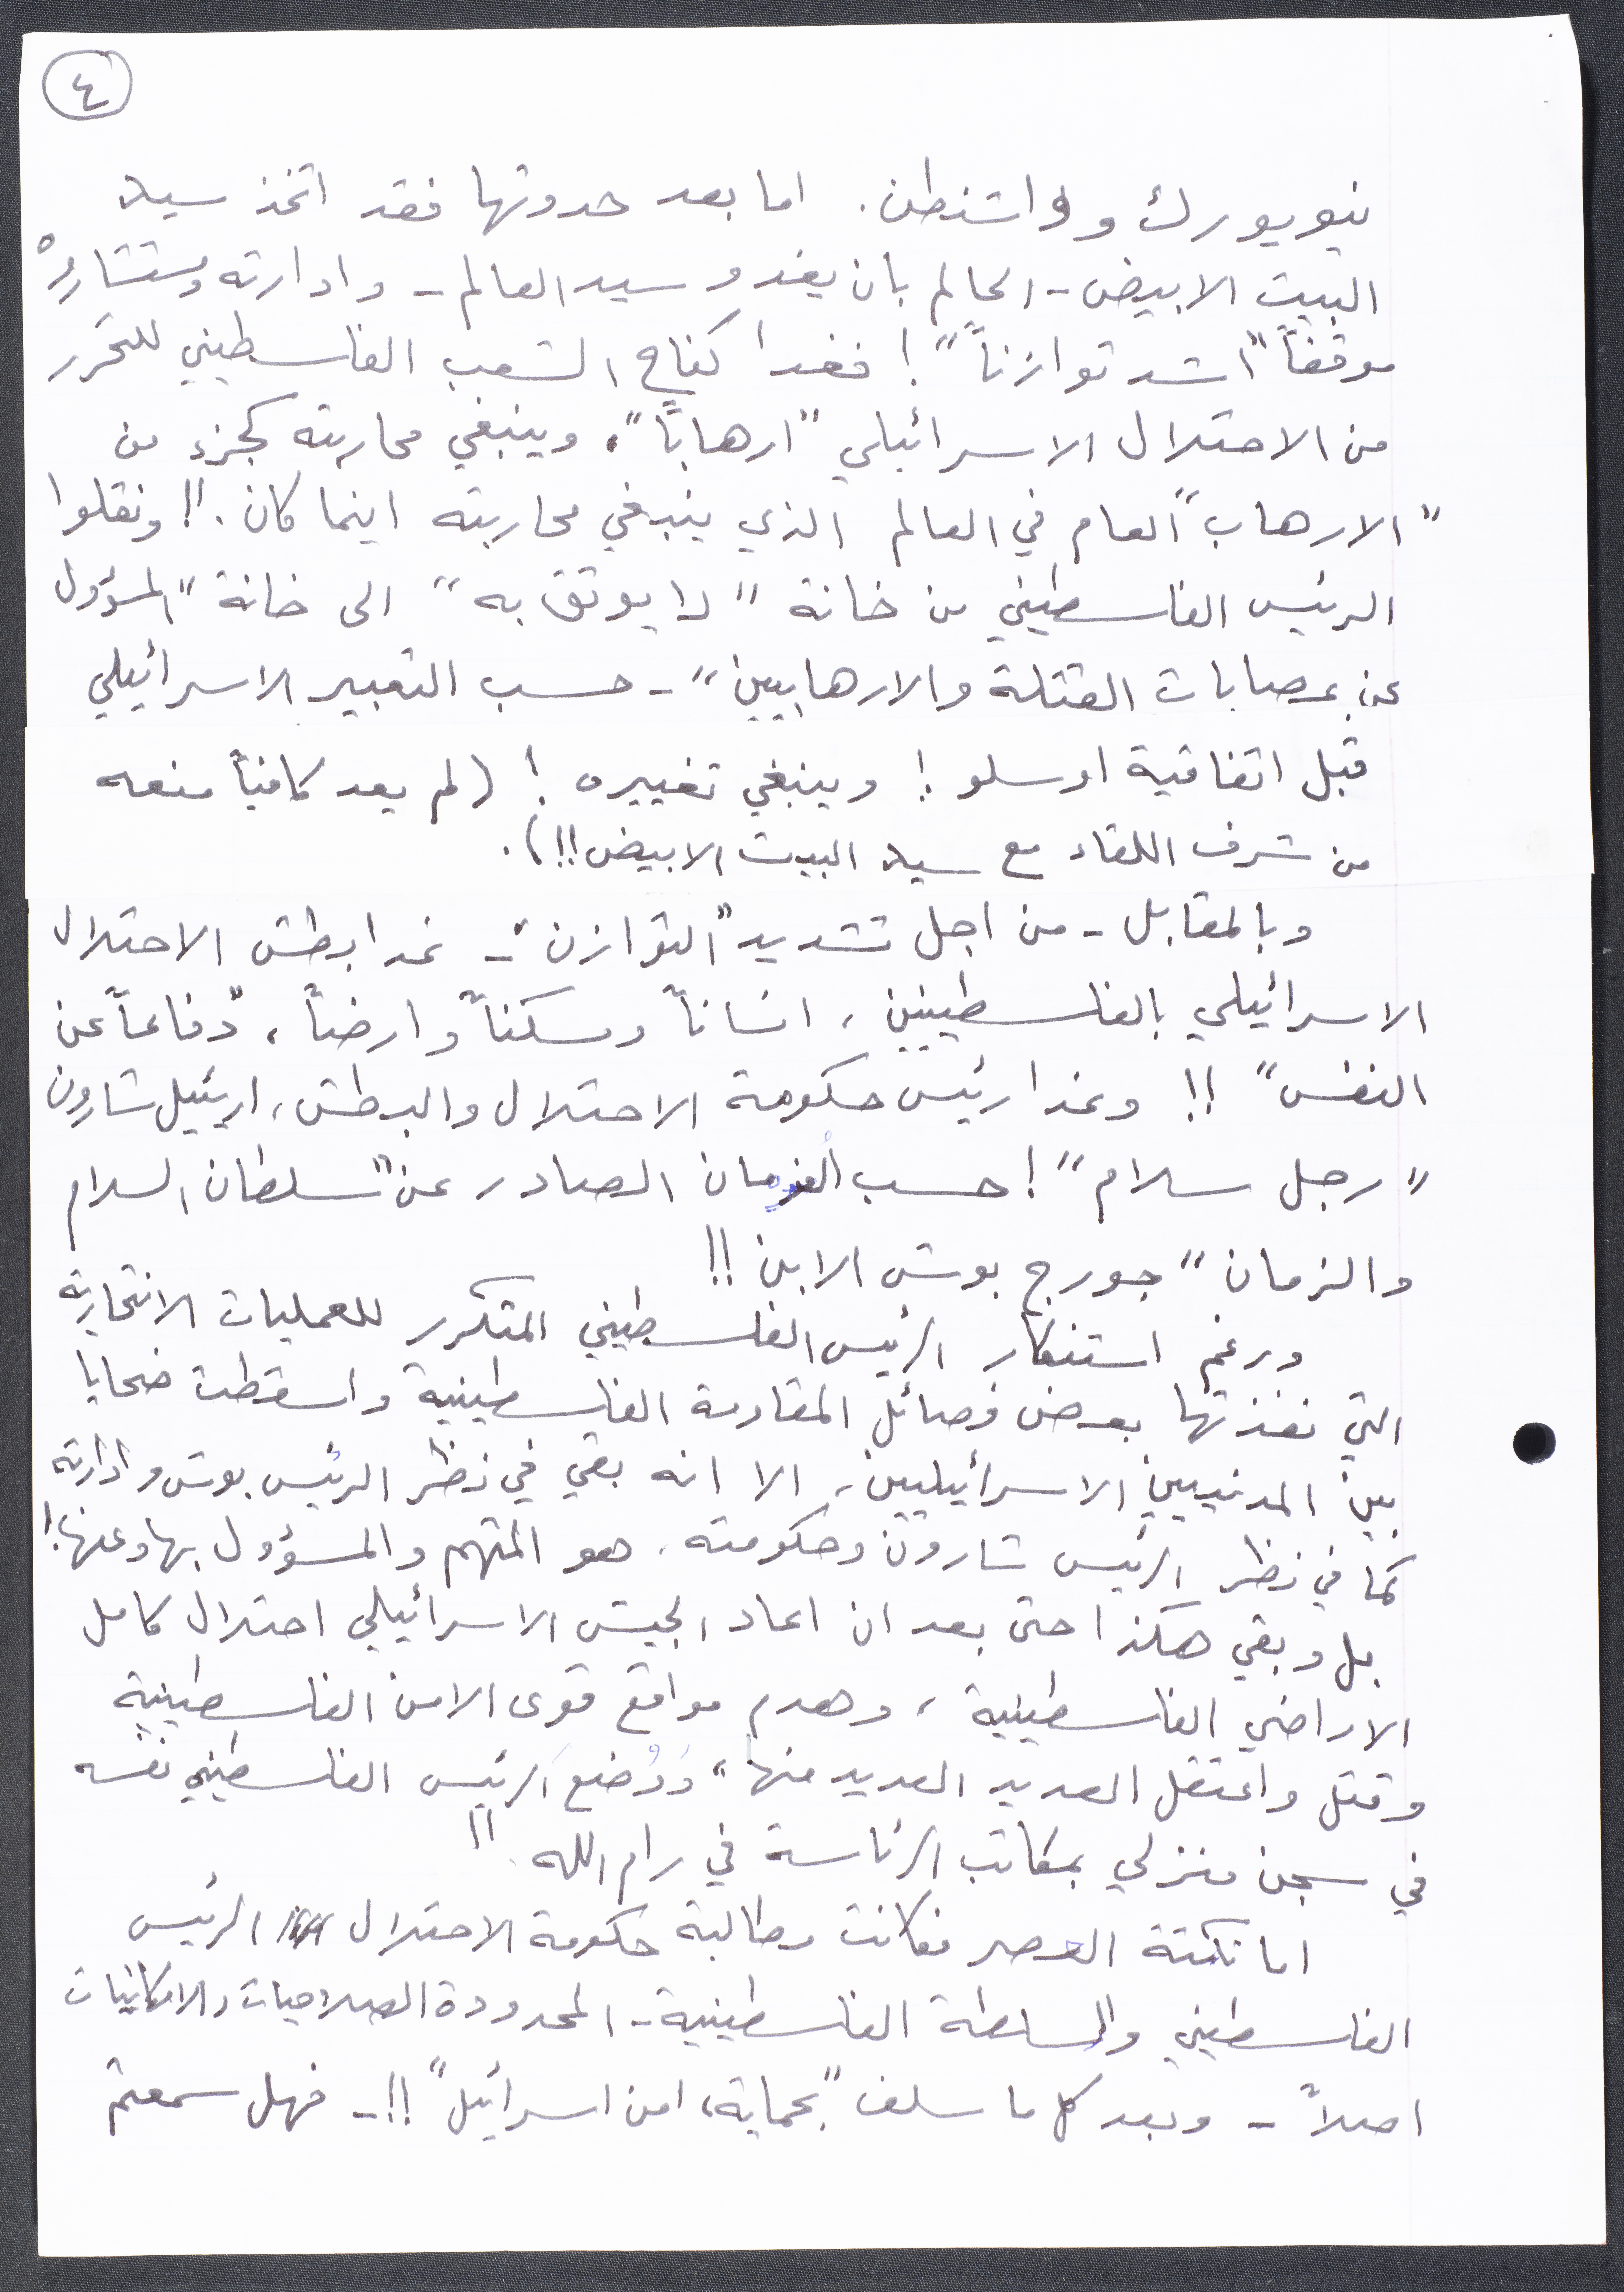 ٤
نيويورك وواشنطن. اما بعد حدوثها فقد اتخذ سيد
البيت الابيض - الحالم بان يغدو سيد العالم - وادارته ومستشاروه
موقفاً "اشد توازناً"! فغدا كفاح الشعب الفلسطيني للتحرر
من الاحتلال الاسرائيلي "ارهاباً"، وينبغي محاربته كجزء من
"الارهاب" العام في العالم الذي ينبغي محاربته اينما كان.!! ونقلوا
الرئيس الفلسطيني من خانة "لا يوثق به" الى خانة "المسؤول
عن عصابات القتلة والارهابيين" - حسب التعبير الاسرائيلي
قبل اتفاقية اوسلو! وينبغي تغييره! (لم يعد كافياً منعه
من شرف اللقاء مع سيد البيت الابيض!!).
وبالمقابل - من اجل تشديد "التوازن" - غدا بطش الاحتلال
الاسرائيلي بالفلسطينيين، انساناً ومسكناً وارضاً، "دفاعاً عن
النفس"!! وغدا رئيس حكومة الاحتلال والبطش، اريئيل شارون
"رجل سلام"! حسب الفرمان الصادر عن "سلطان السلام
والزمان" جورج بوش الابن!!
ورغم استنكار الرئيس الفلسطيني المتكرر للعمليات الانتحارية
التي نفذتها بعض فصائل المقاومة الفلسطينية واسقطت ضحايا
بين المدنيين الاسرائيليين، الا انه بقي في نظر الرئيس بوش وادارته
كما في نظر الرئيس شارون وحكومته، هو المتهم والمسؤول بها وعنها!
بل وبقي هكذا حتى بعد ان اعاد الجيش الاسرائيلي احتلال كامل
الاراضي الفلسطينية، وهدم مواقع قوى الامن الفلسطينية
وقتل واعتقل العديد العديد منها، ووُضع الرئيس الفلسطيني نفسه
في سجن منزلي بمكاتب الرئاسة في رام الله!!
اما نكتة العصر فكانت مطالبة حكومة الاحتلال الرئيس
الفلسطيني والسلطة الفلسطينية - المحدودة الصلاحيات والامكانيات
اصلاً - وبعد كل ما سلف "بحماية، امن اسرائيل"!! - فهل سمعتم